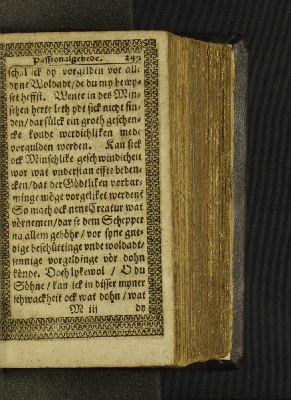 Passionalgebede. 249
schal ick dy vorgelden vor alle
dyne Woldadt/ de du my bewy-
set heffst. Wente in des Min-
schen herte leth ydt sick nicht fin-
den/ dar sülck ein groth geschen-
cke konde werdichliken mede
vorgulden werden. Kan sick
ock Minschlike geschwindicheit
wor wat understan effte beden-
cken/ dat der Gödtliken vorbar-
minge möge vorgeliket werden?
So mach ock nene Creatur wat
vörnemen/ dar se dem Schepper
na allem gehöhr/ vor syne gne-
dige beschüttinge unde woldadt/
jennige vorgeldinge vör dohn
könde. Doch lykewol/ O du
Söhne/ kan ick in disser myner
schwackheit ock wat dohn/ wat
M iij dy